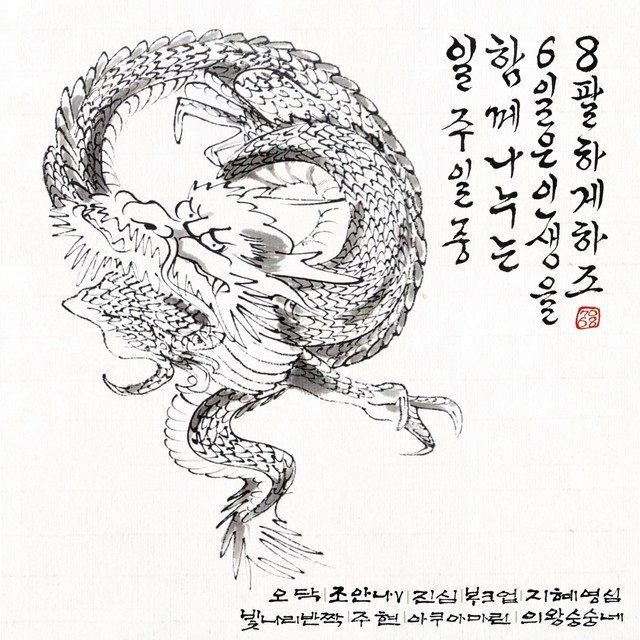 일 주일 중
함께 나누는
6일은 인생을
8팔하게하조
70
68
오닥 | 초안나v | 진심 | 지혜영심
빛나리반짝 | 주현 | 아쿠아마린 | 의왕숭숭네